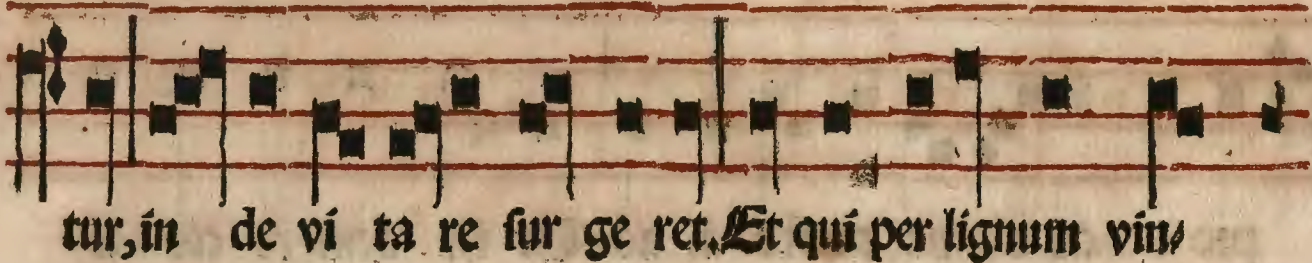 tur, in de vi ta re ſur ge ret. Et qui per lignum vin⸗